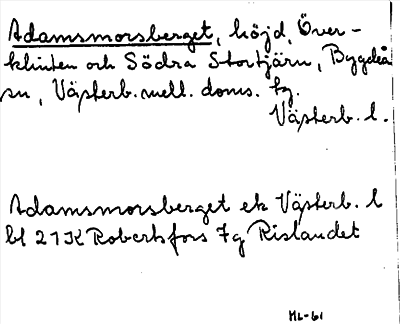 Adamsmorsberget, höjd, Över-
klinten och Södra Stortjärn, Bygdeå
sn, Västerb. mell. doms. bg.
Västerb. l.
Adamsmorsberget ek Västerb. l
bl 21K Robertsfors 7g Rislandet
ML-61